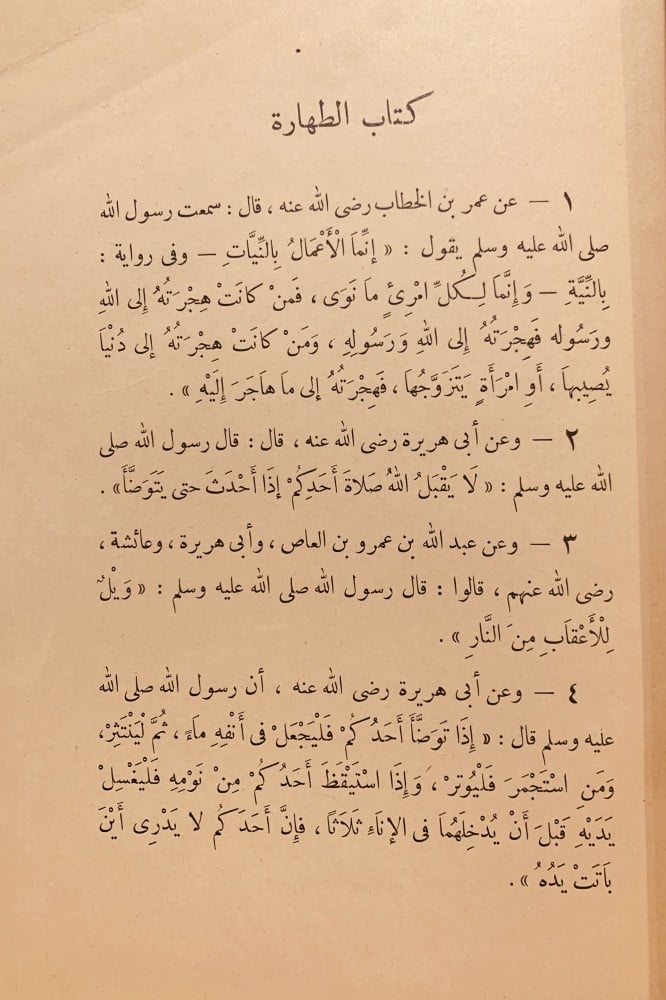 كتاب الطهارة
١ — عن عمر بن الخطاب رضى الله عنه ، قال : سمعت رسول الله
صلى الله عليه وسلم يقول : « إِنَّمَا الْأَعْمَالُ بِالنِّيَّاتِ — وفى رواية :
بِالنِّيَّةِ — وَإِنَّمَا لِـكُلِّ امْرِئٍ مَا نَوَى ، فَمَنْ كانَتْ هِجْرَتُهُ إِلى اللهِ
ورَسُوله فَهِجْرَتُهُ إِلى اللهِ وَرَسُولِهِ ، وَمَنْ كانَتْ هِجْرَتُهُ إلى دُنْيَا
يُصِيبهاَ ، أَوِ امْرَأَةٍ يَتَزَوَّجُهاَ ، فَهِجْرَتُهُ إلى ما هاَجَرَ إِلَيْهِ » .
٢ — وعن أبى هريرة رضى الله عنه ، قال : قال رسول الله صلى
الله عليه وسلم : « لَا يَقْبَلُ اللهُ صَلاةَ أَحَدِكُمْ إذَا أَحْدَثَ حتى يَتَوَضَّأَ» .
٣ — وعن عبد الله بن عمرو بن العاص ، وأبى هريرة ، وعائشة ،
رضى الله عنهم ، قالوا : قال رسول الله صلى الله عليه وسلم : « وَيْلٌ
لِلْأَعْقَابِ مِنَ النَّارِ » .
٤ — وعن أبى هريرة رضى الله عنه ، أن رسول الله صلى الله
عليه وسلم قال : « إِذَا تَوَضَّأَ أَحَدُكُمْ فَلْيَجْعَلْ فى أَنْفِهِ مَاءً ، ثُمَّ لْيَنْتَثِرْ،
وَمَنِ اسْتَجْمَرَ فَلْيُوتِرْ ، وَإِذَا اسْتَيْقَظَ أَحَدُكُمْ مِنْ نَوْمِهِ فَلْيَغْسِلْ
يَدَيْهِ قَبْلَ أَنْ يُدْخِلَهُمَا فى الإنَاءِ ثَلَاثًا ، فإِنَّ أَحَدَكُم لا يَدْرِى أَيْنَ
بَاتَتْ يَدُهُ » .